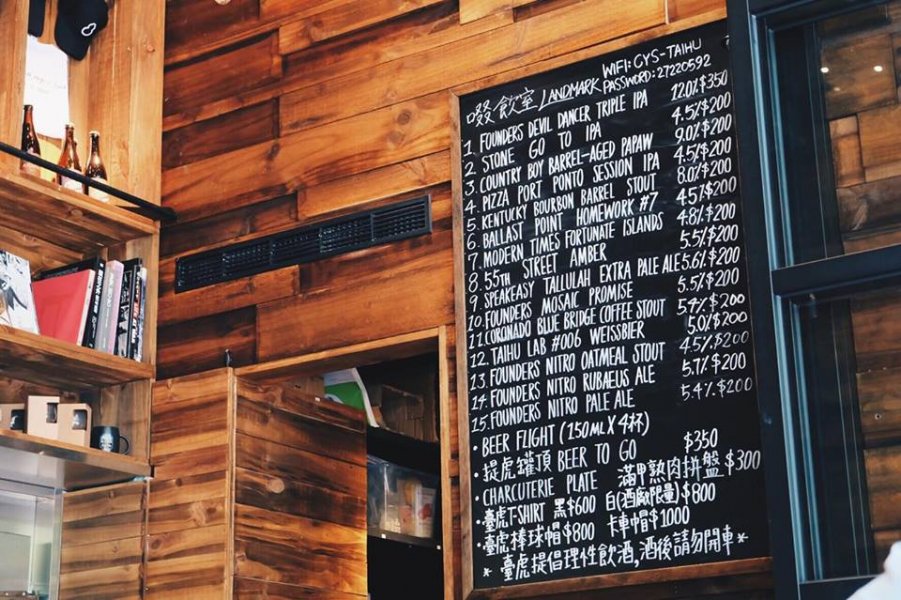 啜飲室 LANDMARK WIFI: CYS-TAIHU
PASSWORD: 27220592
1. FOUNDERS DEVIL DANCER TRIPLE IPA 12.0% $350
2. STONE GO TO IPA 4.5% $200
3. COUNTRY BOY BARREL-AGED PAPAW 9.0% $200
4. PIZZA PORT PONTO SESSION IPA 4.5% $200
5. KENTUCKY BOURBON BARREL STOUT 8.0% $200
6. BALLAST POINT HOMEWORK #7 4.5% $200
7. MODERN TIMES FORTUNATE ISLANDS 4.8% $200
8. 55TH STREET AMBER 5.5% $200
9. SPEAKEASY TALLULAH EXTRA PALE ALE 5.6% $200
10. FOUNDERS MOSAIC PROMISE 5.5% $200
11. CORONADO BLUE BRIDGE COFFEE STOUT 5.4% $200
12. TAIHU LAB #006 WEISSBIER 5.0% $200
13. FOUNDERS NITRO OATMEAL STOUT 4.5% $200
14. FOUNDERS NITRO RUBAEUS ALE 5.7% $200
15. FOUNDERS NITRO PALE ALE 5.4% $200
• BEER FLIGHT (150ML X 4杯)
• 提虎罐頂 BEER TO GO $350
• CHARCUTERIE PLATE 滿甲熟肉拼盤 $300
• 臺虎T-SHIRT 黑$600 白(酒廠限量)$800
臺虎棒球帽$800 卡車帽$1000
* 臺虎提倡理性飲酒,酒後請勿開車 *